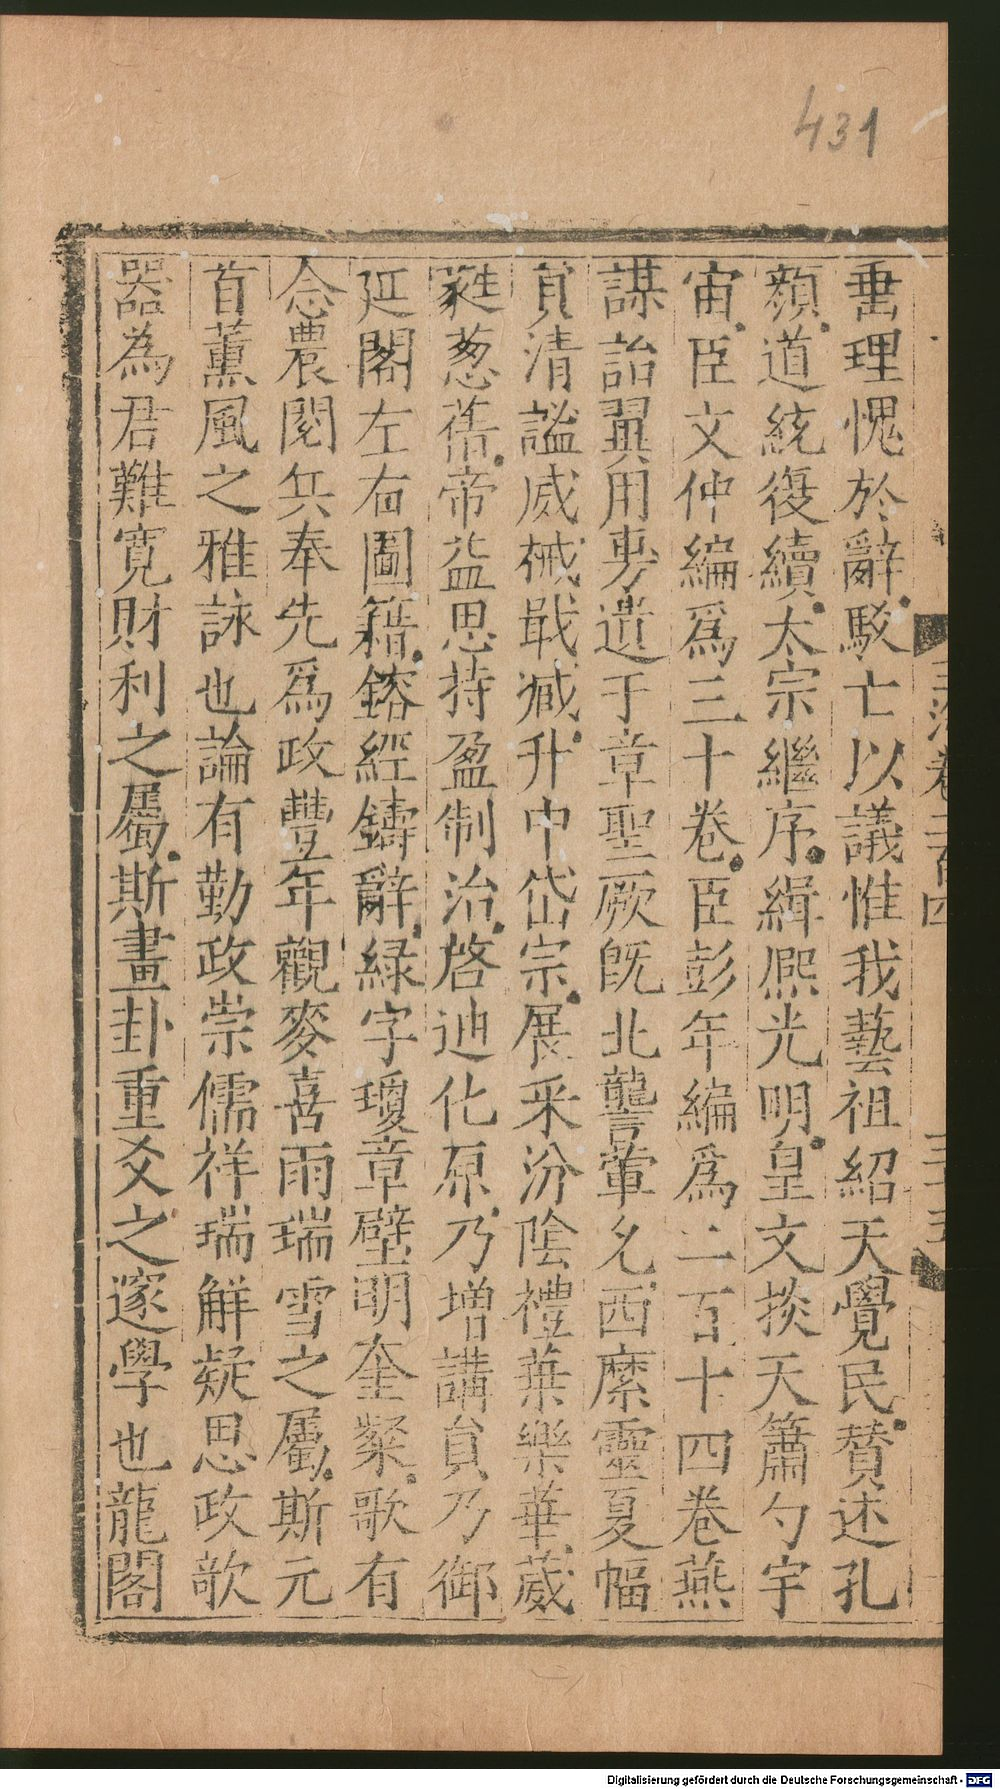 431
垂理愧於辭駁亡以議惟我藝祖紹天覺民賛述孔
顔道統復續太宗繼序緝熈光明皇文掞天簫勺宇
宙臣文仲編爲三十卷臣彭年編爲二百十四卷燕
謀詒翼用旉遺于章聖厥旣北讋葷允西縻靈夏幅
貟清謐威械戢臧升中岱宗展采汾陰禮葉樂華葳
蕤葱蒨帝益思持盈制治啓迪化原乃增講貟乃御
延閣左右圖籍鎔經鑄辭緑字瓊章壁明奎粲歌有
念農閱兵奉先爲政豐年觀麥喜雨瑞雪之屬斯元
首薫風之雅詠也論有勤政崇儒祥瑞解疑思政歌
器為君難寛財利之屬斯畫卦重爻之邃學也龍閣
Digitalisierung gefördert durch die Deutsche Forschungsgemeinschaft - DFG